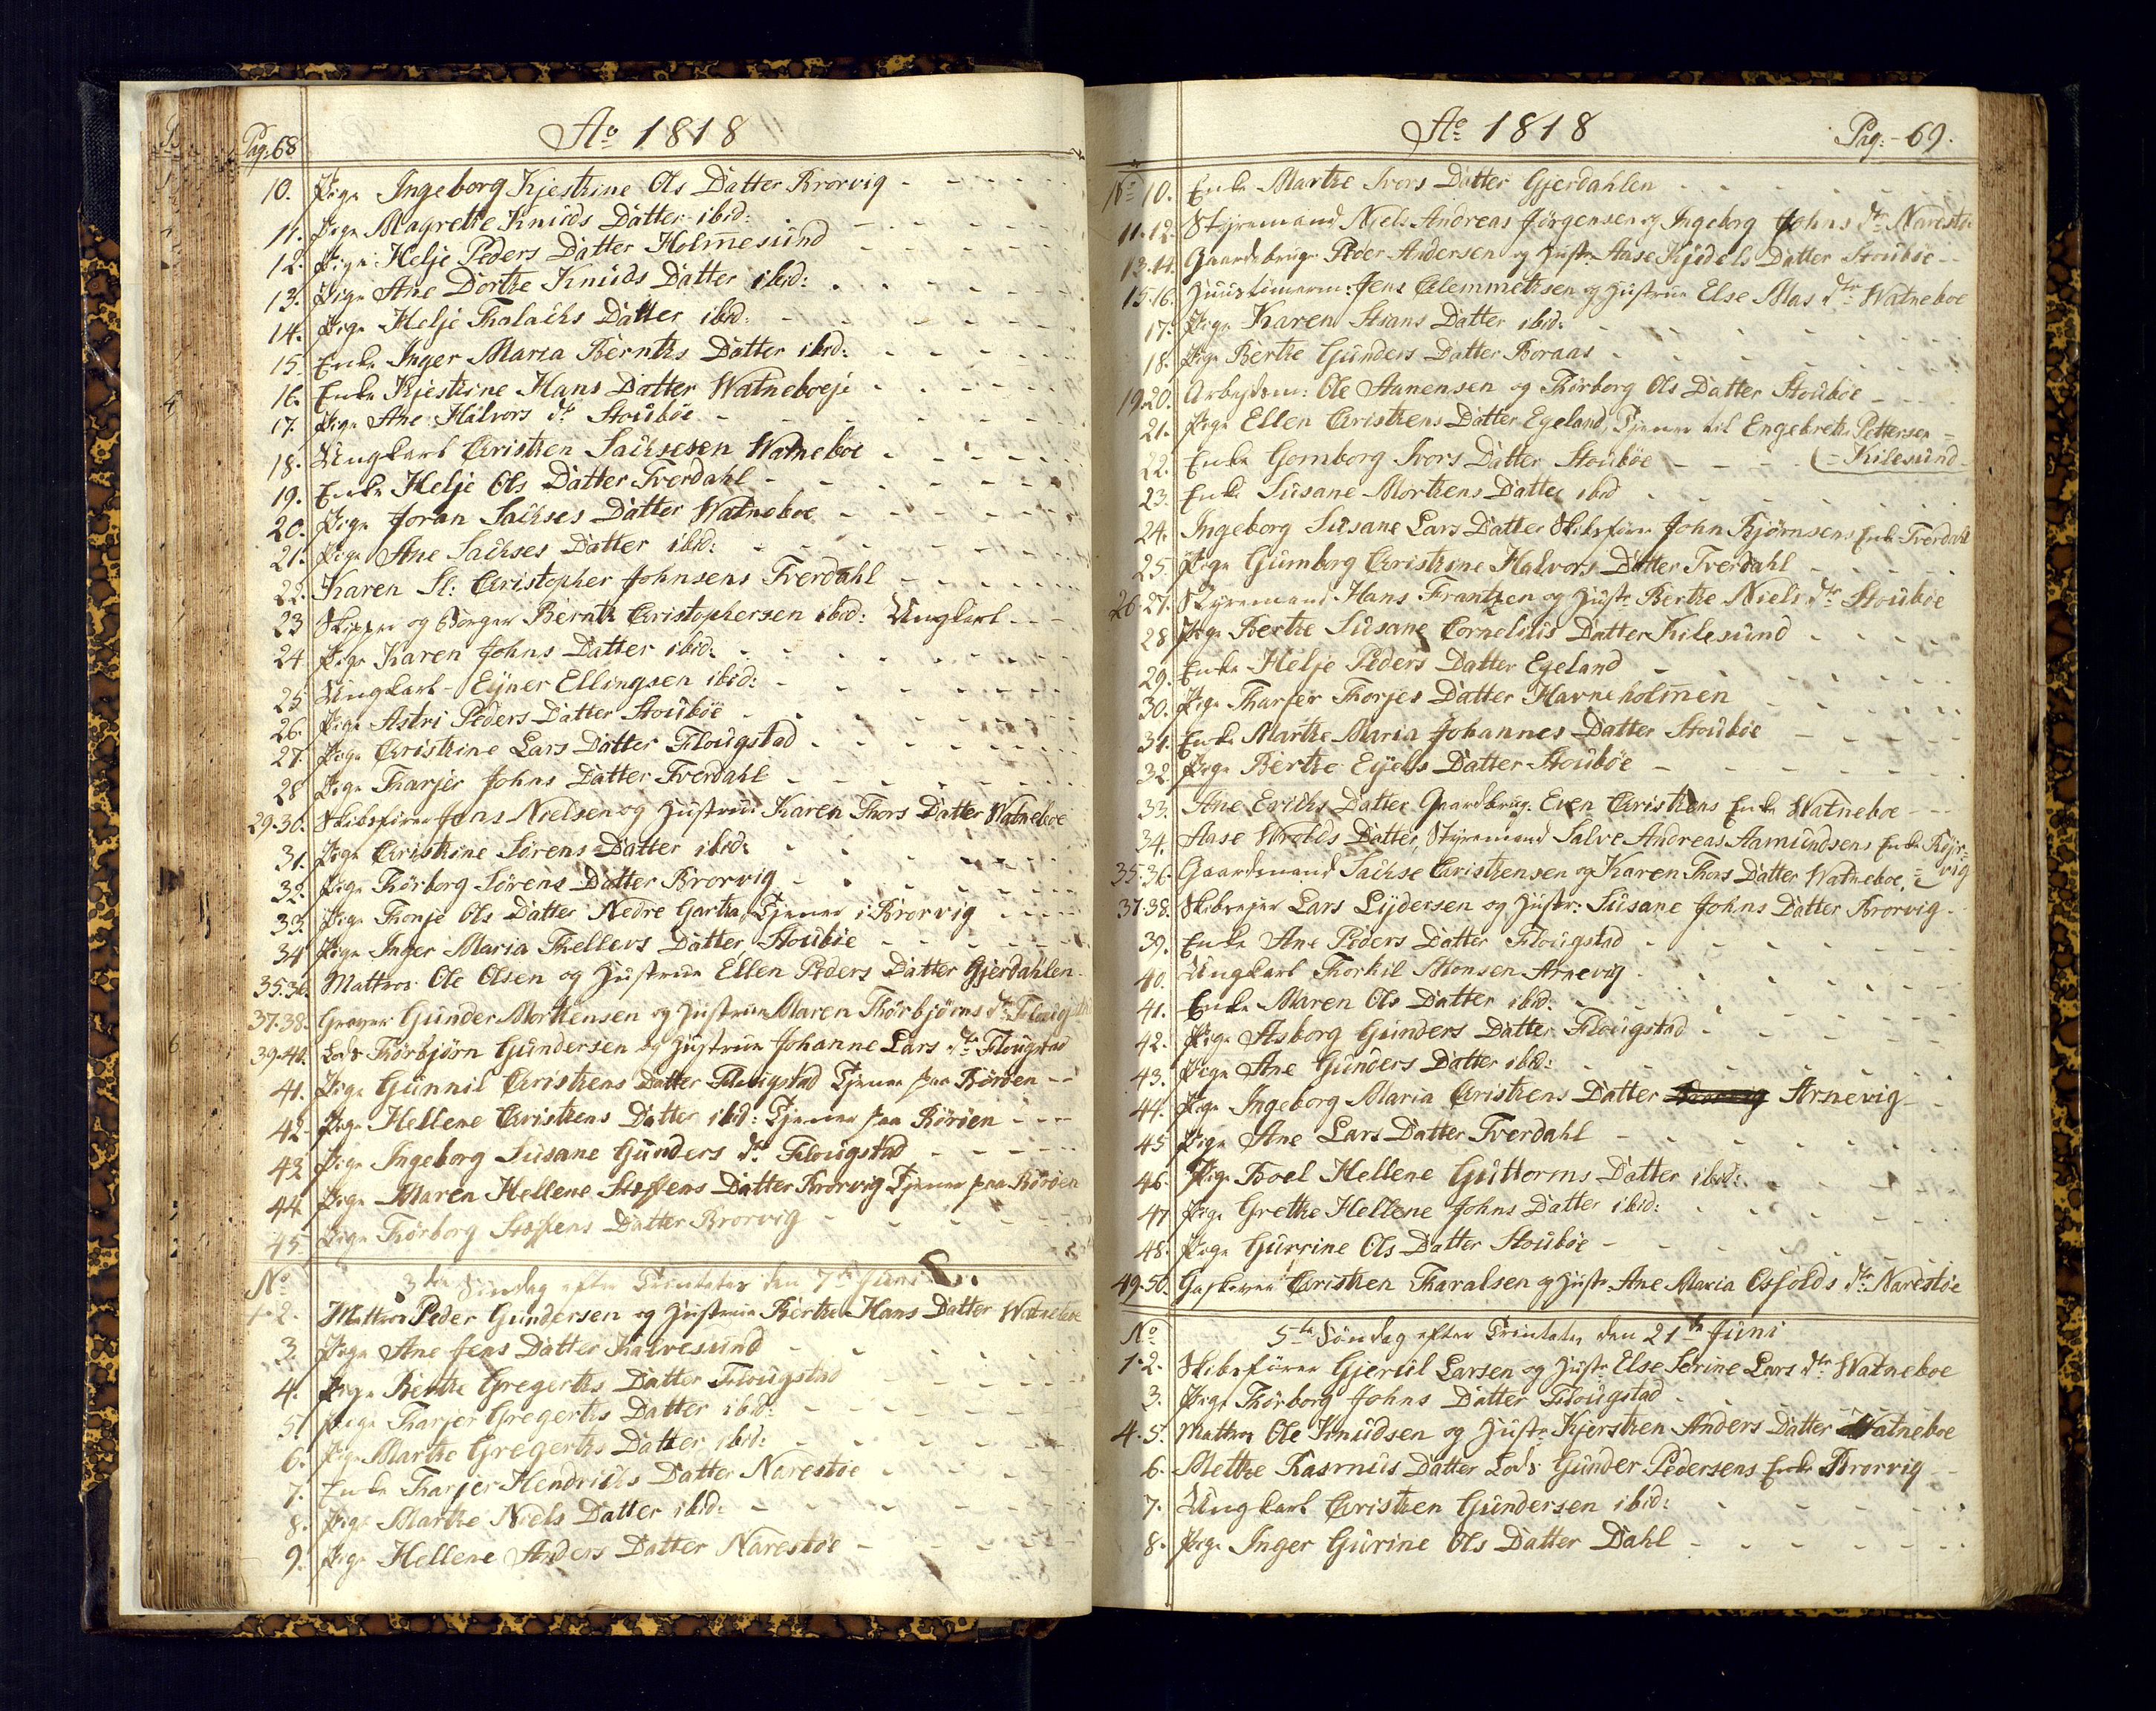 Pag: 68
Ao 1818
10. Pige Ingeborg Kjestine Ols Datter Krorvig
11. Pige Magrethe Knuds Datter ibid:
12. Pige Helje Peders Datter Holmesund
13. Pige Ane Dorthe Knuds Datter ibid:
14. Pige Helje Thalachs Datter ibid:
15. Enke Inger Maria Bernths Datter ibid:
16. Enke Kjestine Hans Datter Watneboeje
17. Pige Ane Halvors Dr Stoubøe
18. Ungkarl Christen Sachsesen Watneboe
19. Enke Helje Ols Datter Tverdahl
20. Pige Joran Sachses Datter Watneboe
21. Pige Ane Sachses Datter ibid:
22. Karen Sl: Christopher Johnsens Tverdahl
23 Skipper og Borger Bernth Christophersen ibid: Ungkarl
24. Pige Karen Johns Datter ibid:
25 Ungkarl Ejner Ellingsen ibid:
26. Pige Astri Peders Datter Stoubøe
27. Pige Christine Lars Datter Flougstad
28 Pige Tharjer Johns Datter Tverdahl
29.30. Skibsfører Jens Nielsen og Hustrue Karen Thors Datter Watneboe
31. Pige Christine Sørens Datter ibid:
32. Pige Thørborg Sørens Datter Krorvig
33. Pige Thonje Ols Datter Nedre Gartha, Tjener i Krorvig
34 Pige Inger Maria Thellevs Datter Stoubøe
35.36. Mattros Ole Olsen og Hustrue Ellen Peders Datter Gjerdahlen
37.38. Graver Gunder Morthensen og Hustrue Maren Thorbjørns Dr
39.40. Lods Thørbjørn Gundersen og Hustrue Johanne Lars Dr Flougstad
41. Pige Gunnil Christens Datter Flougstad Tjener paa Børøen
42. Pige Hellene Christens Datter ibid: Tjener paa Børøen
43 Pige Ingeborg Susane Gunders Dr Flougstad
44. Pige Maren Hellene Steffens Datter Krorvig Tjener paa Børøen
45. Pige Thørborg Steffens Datter Krorvig
No 3die Søndag efter Trinitatis den 7de Juni
1.2. Mattros Peder Gundersen og Hustrue Berthe Hans Datter Watneboe
3. Pige Ane Jens Datter Kalvesund
4. Pige Berthe Gregerths Datter Flougstad
5. Pige Tharjer Gregerths Datter ibid:
6. Pige Marthe Gregerths Datter ibid:
7. Enke Tharjer Hendrichs Datter Narestøe
8. Pige Marthe Niels Datter ibid:
9. Pige Hellene Anders Datter Narestøe
Ao 1818
Pag: 69.
No 10. Enke Marthe Ivors Datter Gjerdahlen
11.12. Styremand Niels Andreas Jørgensen og Ingeborg Johns Dr
13.14. Gaardebruger Roer Andersen og Hustr: Aase Kjidels Datter Stoubøe
15.16. Huustømerm: Jens Clemmethsen og Hustrue Else Mas Dr Watneboe
17. Pige Karen Stians Datter ibid:
18. Pige Berthe Gunders Datter Boraas
19.20. Arbejdsm: Ole Aanensen og Thørborg Ols Datter Stoubøe
21. Pige Ellen Christens Datter Egeland, Tjener til Engebreth Pettersen =
22. Enke Gomborg Ivors Datter Stoubøe (= Kilesund
23. Enke Susane Morthens Datter ibid
24. Ingeborg Susane Lars Datter Skibsfører John Bjørnsens Enke Tverdahl
25. Pige Gumborg Christine Halvors Datter Tverdahl
26.27. Styremand Hans Frantzen og Hustr: Berthe Niels Dr Stoubøe
28 Pige Berthe Susane Cornelius Datter Kilesund
29. Enke Helje Peders Datter Egeland
30. Pige Tharjer Thorjes Datter Havneholmen
31. Enke Marthe Maria Johannes Datter Stoubøe
32. Pige Berthe Ejels Datter Stoubøe
33. Ane Erichs Datter Gaardbrug: Even Christens Enke Watneboe
34. Aase Wrolds Datter, Styremand Salve Andreas Aamundsens Enke Kejr=
35.36. Gaardmand Sachse Christensen og Karen Thors Datter Watneboe, (=vig
37.38. Skibsejer Lars Lydersen og Hustr: Susane Johns Datter Krorvig
39. Enke Ane Peders Datter Flougstad
40. Ungkarl Thorkil Monsen Arnevig
41. Enke Maren Ols Datter ibid:
42. Pige Asborg Gunders Datter Flougstad
43. Pige Ane Gunders Datter ibid:
44. Pige Ingeborg Maria Christens Datter Arnevig
45 Pige Ane Lars Datter Tverdahl
46. Pige Boel Hellene Guttorms Datter ibid:
47 Pige Grethe Hellene Johns Datter ibid:
48. Pige Gurine Ols Datter Stoubøe
49.50. Christen Tharalsen og Hustr: Ane Maria Osfolds Dr Narestøe
No 5te Søndag efter Trinitatis den 21de Juni
1.2. Skibsfører Gjerul Larsen og Hustr: Else Serine Lars Dr Watneboe
3. Pige Thørborg Johns Datter Flougstad
4.5. Mattros Ole Knudsen og Hustr: Kjersthen Anders Datter Watneboe
6. Methe Rasmus Datter Lods Gunder Pedersens Enke Krorvig
7. Ungkarl Christen Gundersen ibid:
8. Pige Inger Gurine Ols Datter Dahl